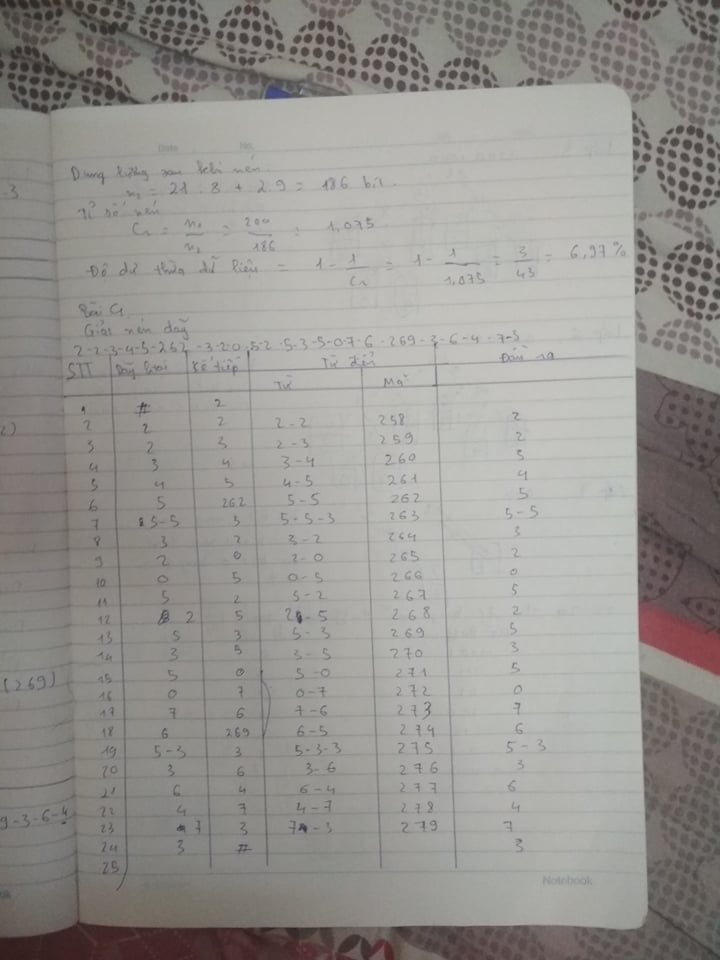 -3
Date No.
Dung lượng sau khi nén.
n₂ = 21 . 8 + 2 . 9 = 186 bit.
Tỉ số nén
Cr = n₁/n₂ = 200/186 = 1,075
Độ dư thừa dữ liệu = 1 - 1/Cr = 1 - 1/1,075 = 3/43 = 6,97%
Giải nén dãy
2-2-3-4-5-262-3-2-0-5-2-5-3-5-0-7-6-269-3-6-4-7-3
STT Kế tiếp Từ điển Đầu ra
Từ Mã
1 # 2
2 2 2 2-2 258 2
3 2 3 2-3 259 2
4 3 4 3-4 260 3
5 4 5 4-5 261 4
6 5 262 5-5 262 5
7 5-5 3 5-5-3 263 5-5
8 3 2 3-2 264 3
9 2 0 2-0 265 2
10 0 5 0-5 266 0
11 5 2 5-2 267 5
12 2 5 2-5 268 2
13 5 3 5-3 269 5
14 3 5 3-5 270 3
15 5 0 5-0 271 5
16 0 7 0-7 272 0
17 7 6 7-6 273 7
18 6 269 6-5 274 6
19 5-3 3 5-3-3 275 5-3
20 3 6 3-6 276 3
21 6 4 6-4 277 6
22 4 7 4-7 278 4
23 7 3 7-3 279 7
24 3 # 3
25
2)
(269)
9-3-6-4
Notebook